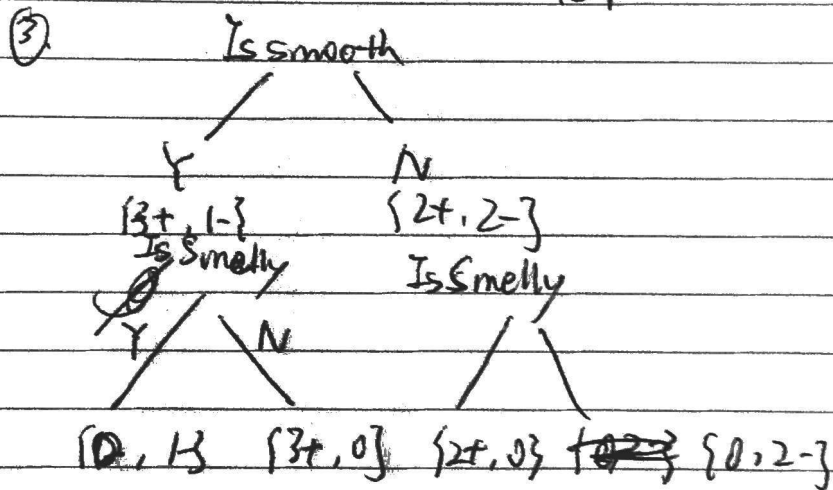 ③
Is smooth
Y N
{3+, 1-} {2+, 2-}
Is Smelly Is Smelly
Y N
{0, 1-} {3+, 0} {2+, 0} {0, 2-}